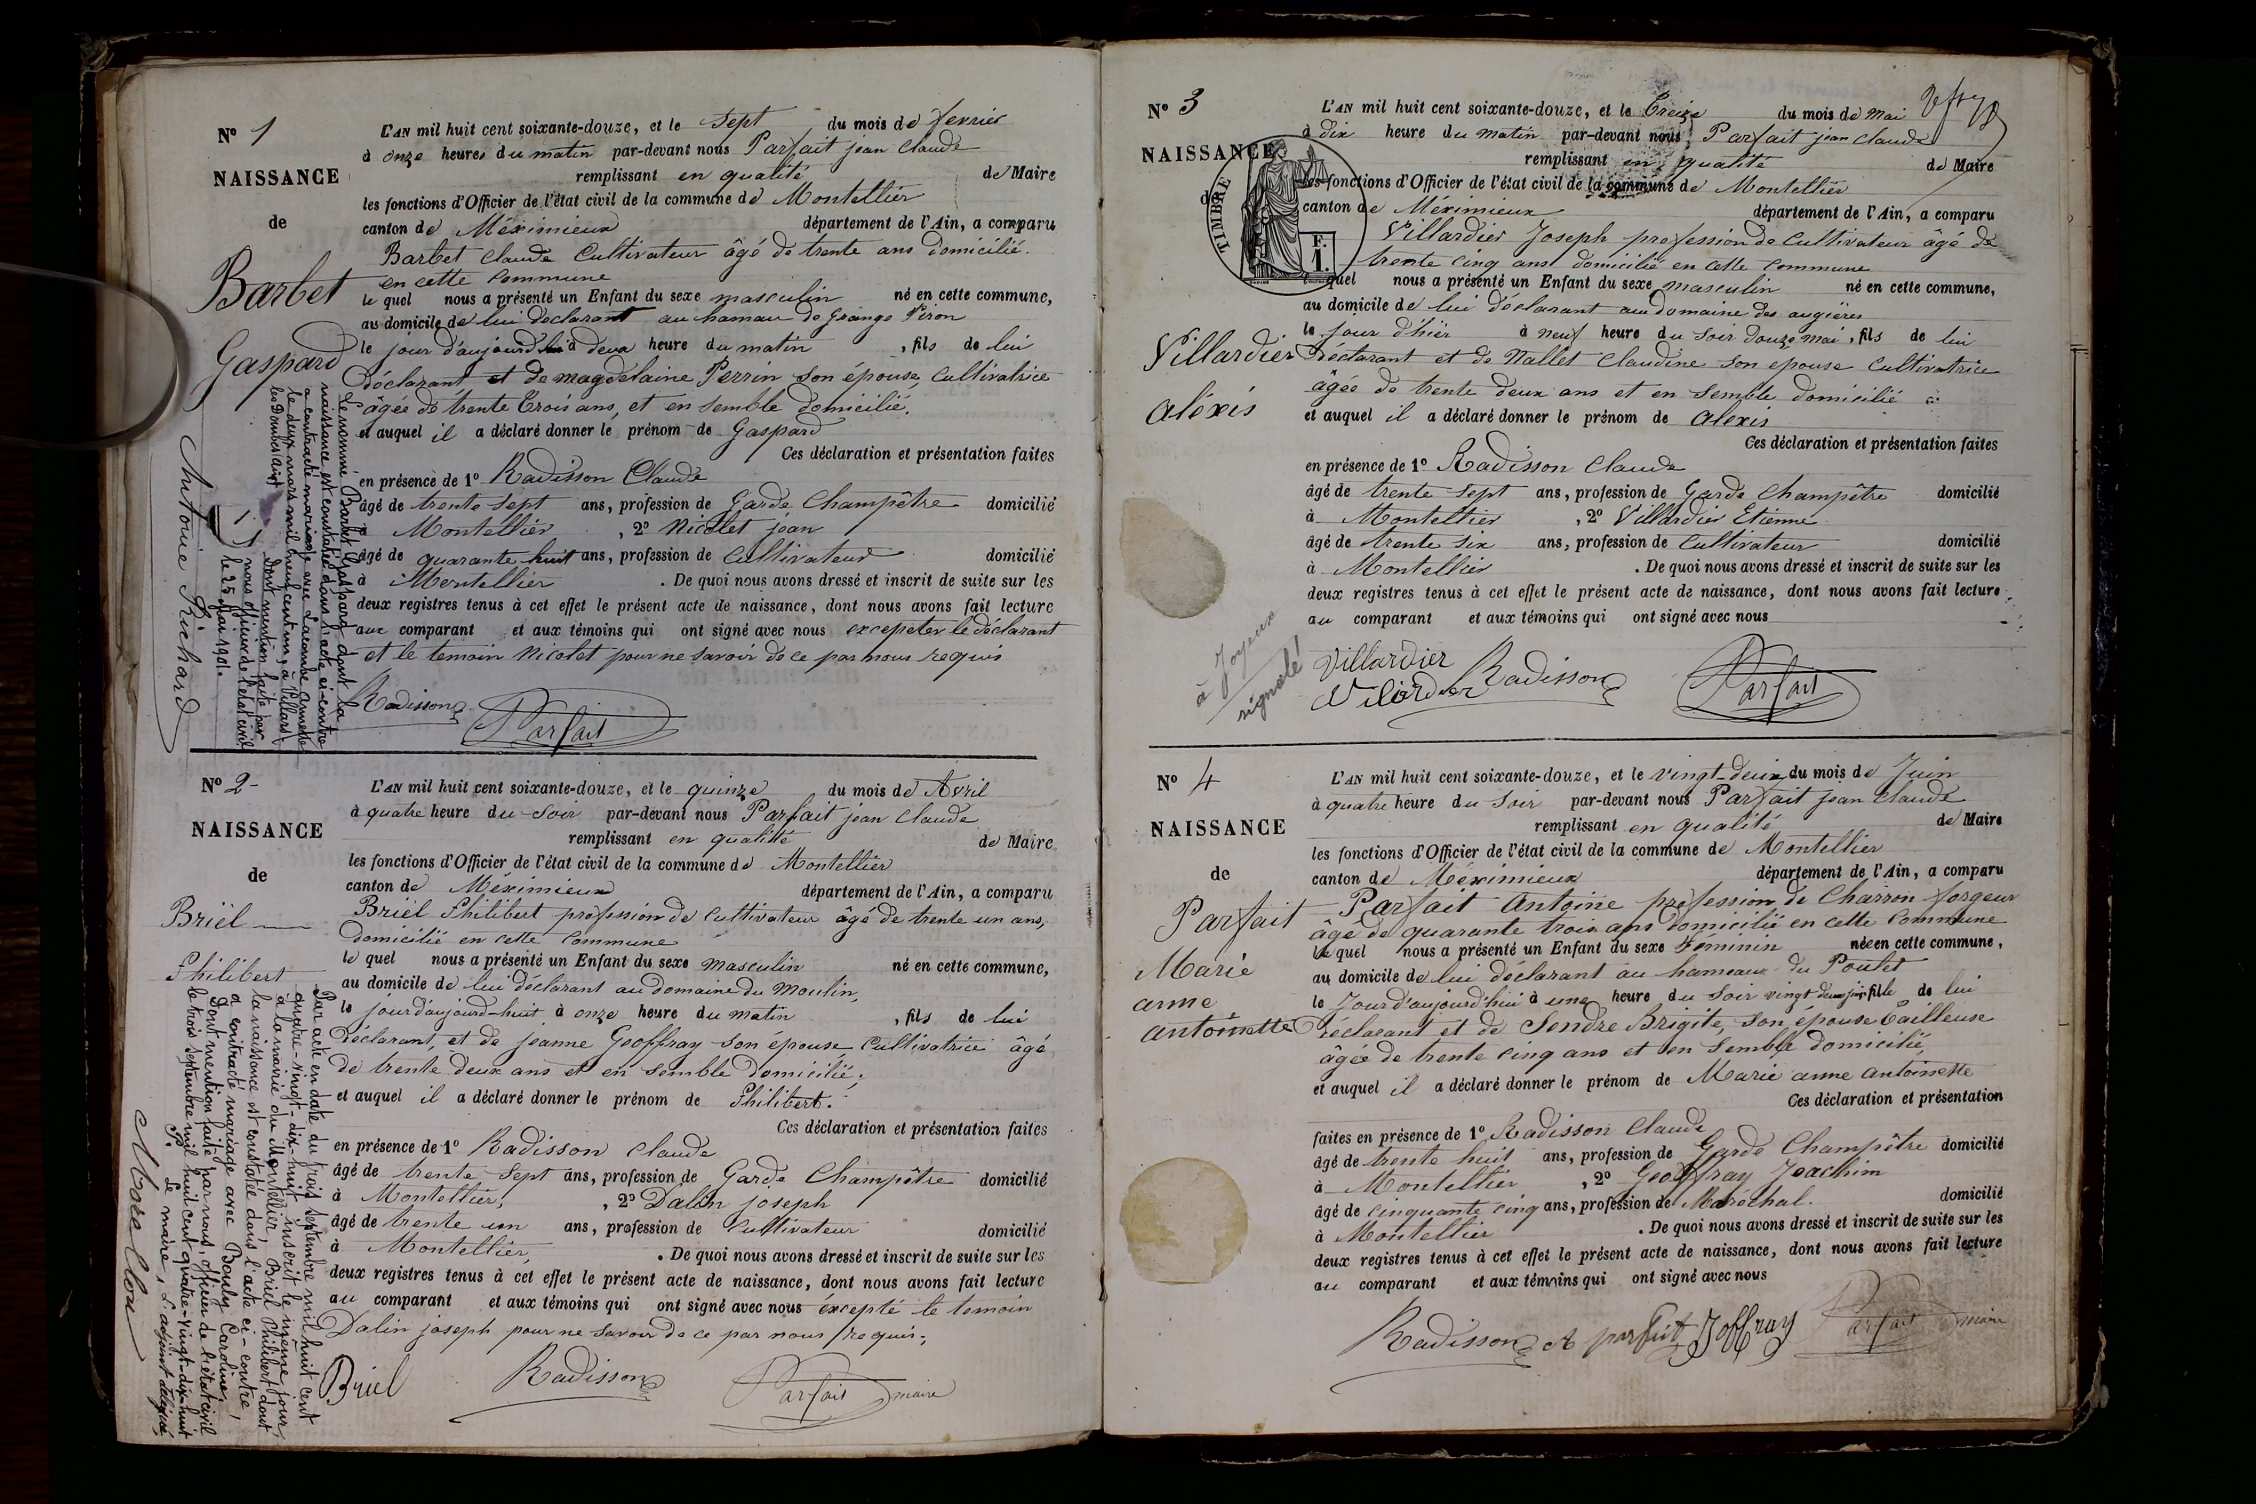 N° 1
NAISSANCE
de
Barbet
Gaspard
L'AN mil huit cent soixante-douze, et le Sept du mois de fevrier
à onze heures du matin par-devant nous Parfait jean Claude
remplissant en qualité de Maire
les fonctions d'Officier de l'état civil de la commune de Montellier
canton de Méximieux département de l'Ain, a comparu
Barbet Claude Cultivateur âgé de trente ans domicilié
en cette commune
le quel nous a présenté un Enfant du sexe masculin né en cette commune,
au domicile de lui déclarant au hamau de Grange Péron
le jour d'aujourd'hui à deux heure du matin , fils de lui
déclarant et de magdelaine Perrin son épouse, Cultivatrice
âgée de trente trois ans, et en semble domicilié,
et auquel il a déclaré donner le prénom de Gaspard
Ces déclaration et présentation faites
en présence de 1° Radisson Claude
âgé de trente sept ans, profession de Garde Champêtre domicilié
à Montellier , 2° Nicolet jean
âgé de quarante huit ans, profession de Cultivateur domicilié
à Montellier . De quoi nous avons dressé et inscrit de suite sur les
deux registres tenus à cet effet le présent acte de naissance, dont nous avons fait lecture
aux comparant et aux témoins qui ont signé avec nous excepeter le déclarant
et le temoin Nicolet pour ne savoir de ce par nous requis
Radisson Parfait
Le nommé Barbet Gaspard dont la
naissance est constatée dans l'acte ci-contre
a contracté mariage avec Lacombe Annette
le deux mars mil neuf cent un, à Villars
les Dombes (Ain)
Dont mention faite par
nous officier de l'état civil
le 25 mars 1901.
Antoine Richard
N° 2
NAISSANCE
de
Briël
Philibert
L'AN mil huit cent soixante-douze, et le quinze du mois de Avril
à quatre heure du Soir par-devant nous Parfait jean Claude
remplissant en qualité de Maire
les fonctions d'Officier de l'état civil de la commune de Montellier
canton de Méximieux département de l'Ain, a comparu
Briël Philibert profession de cultivateur âgé de trente un ans,
domicilié en cette commune
le quel nous a présenté un Enfant du sexe masculin né en cette commune,
au domicile de lui déclarant au domaine du Moulin,
le jour d'aujourd-huit à onze heure du matin , fils de lui
déclarant, et de jeanne Geoffray son épouse Cultivatrice âgé
de trente deux ans et en semble domicilié;
et auquel il a déclaré donner le prénom de Philibert.
Ces déclaration et présentation faites
en présence de 1° Radisson Claude
âgé de trente Sept ans, profession de Garde Champêtre domicilié
à Montellier, , 2° Dalin joseph
âgé de trente un ans, profession de Cultivateur domicilié
à Montellier, . De quoi nous avons dressé et inscrit de suite sur les
deux registres tenus à cet effet le présent acte de naissance, dont nous avons fait lecture
au comparant et aux témoins qui ont signé avec nous éxcepté le temoin
Dalin joseph pour ne savoir de ce par nous requis;
Briel Radisson Parfait maire
Par acte en date du trois septembre mil huit cent
quatre-vingt-dix-huit inscrit le même jour
à la mairie du Montellier, Briel Philibert dont
la naissance est constatée dans l'acte ci-contre,
a contracté mariage avec Bouly Caroline.
Dont mention faite par nous, officier de l'état civil
le trois septembre mil huit cent quatre-vingt-dix-huit
P. Le maire, L'adjoint délégué,
N° 3
NAISSANCE
de
Villardier
Aléxis
TIMBRE
F.
1.
L'AN mil huit cent soixante-douze, et le treize du mois de mai
à dix heure du matin par-devant nous Parfait jean Claude
remplissant en qualité de Maire
les fonctions d'Officier de l'état civil de la commune de Montellier
canton de Méximieux département de l'Ain, a comparu
Villardier Joseph profession de Cultivateur âgé de
trente cinq ans domicilié en cette commune
le quel nous a présenté un Enfant du sexe masculin né en cette commune,
au domicile de lui déclarant au domaine des augières
le jour d'hièr à neuf heure du Soir douze mai, fils de lui
déclarant et de Nallet Claudine son epouse Cultivatrice
âgée de trente deux ans et en semble domicilié
et auquel il a déclaré donner le prénom de Alexis
Ces déclaration et présentation faites
en présence de 1° Radisson Claude
âgé de trente sept ans, profession de Garde Champêtre domicilié
à Montellier , 2° Villardier Etienne
âgé de trente six ans, profession de Cultivateur domicilié
à Montellier . De quoi nous avons dressé et inscrit de suite sur les
deux registres tenus à cet effet le présent acte de naissance, dont nous avons fait lecture
au comparant et aux témoins qui ont signé avec nous
à Joyeux
signalé!
Villardier Radisson Parfait
N° 4
NAISSANCE
de
Parfait
Marie
anne
antoinette
L'AN mil huit cent soixante-douze, et le vingt-deux du mois de Juin
à quatre heure du Soir par-devant nous Parfait jean Claude
remplissant en qualité de Maire
les fonctions d'Officier de l'état civil de la commune de Montellier
canton de Méximieux département de l'Ain, a comparu
Parfait Antoine profession de Charron forgeur
âgé de quarante trois ans domicilié en cette Commune
le quel nous a présenté un Enfant du sexe Féminin née en cette commune,
au domicile de lui déclarant au hameaux du Poulet
le Jour d'aujourd'hui à une heure du Soir vingt deux juin fille de lui
déclarant et de Sendre Brigite, son epouse tailleuse
âgée de trente cinq ans et en semble domicilié,
et auquel il a déclaré donner le prénom de Marie anne antoinette
Ces déclaration et présentation
faites en présence de 1° Radisson Claude
âgé de trente huit ans, profession de Garde Champêtre domicilié
à Montellier , 2° Geoffray Joachim
âgé de cinquante cinq ans, profession de Maréchal domicilié
à Montellier . De quoi nous avons dressé et inscrit de suite sur les
deux registres tenus à cet effet le présent acte de naissance, dont nous avons fait lecture
au comparant et aux témoins qui ont signé avec nous
Radisson A parfait Joffray Parfait maire